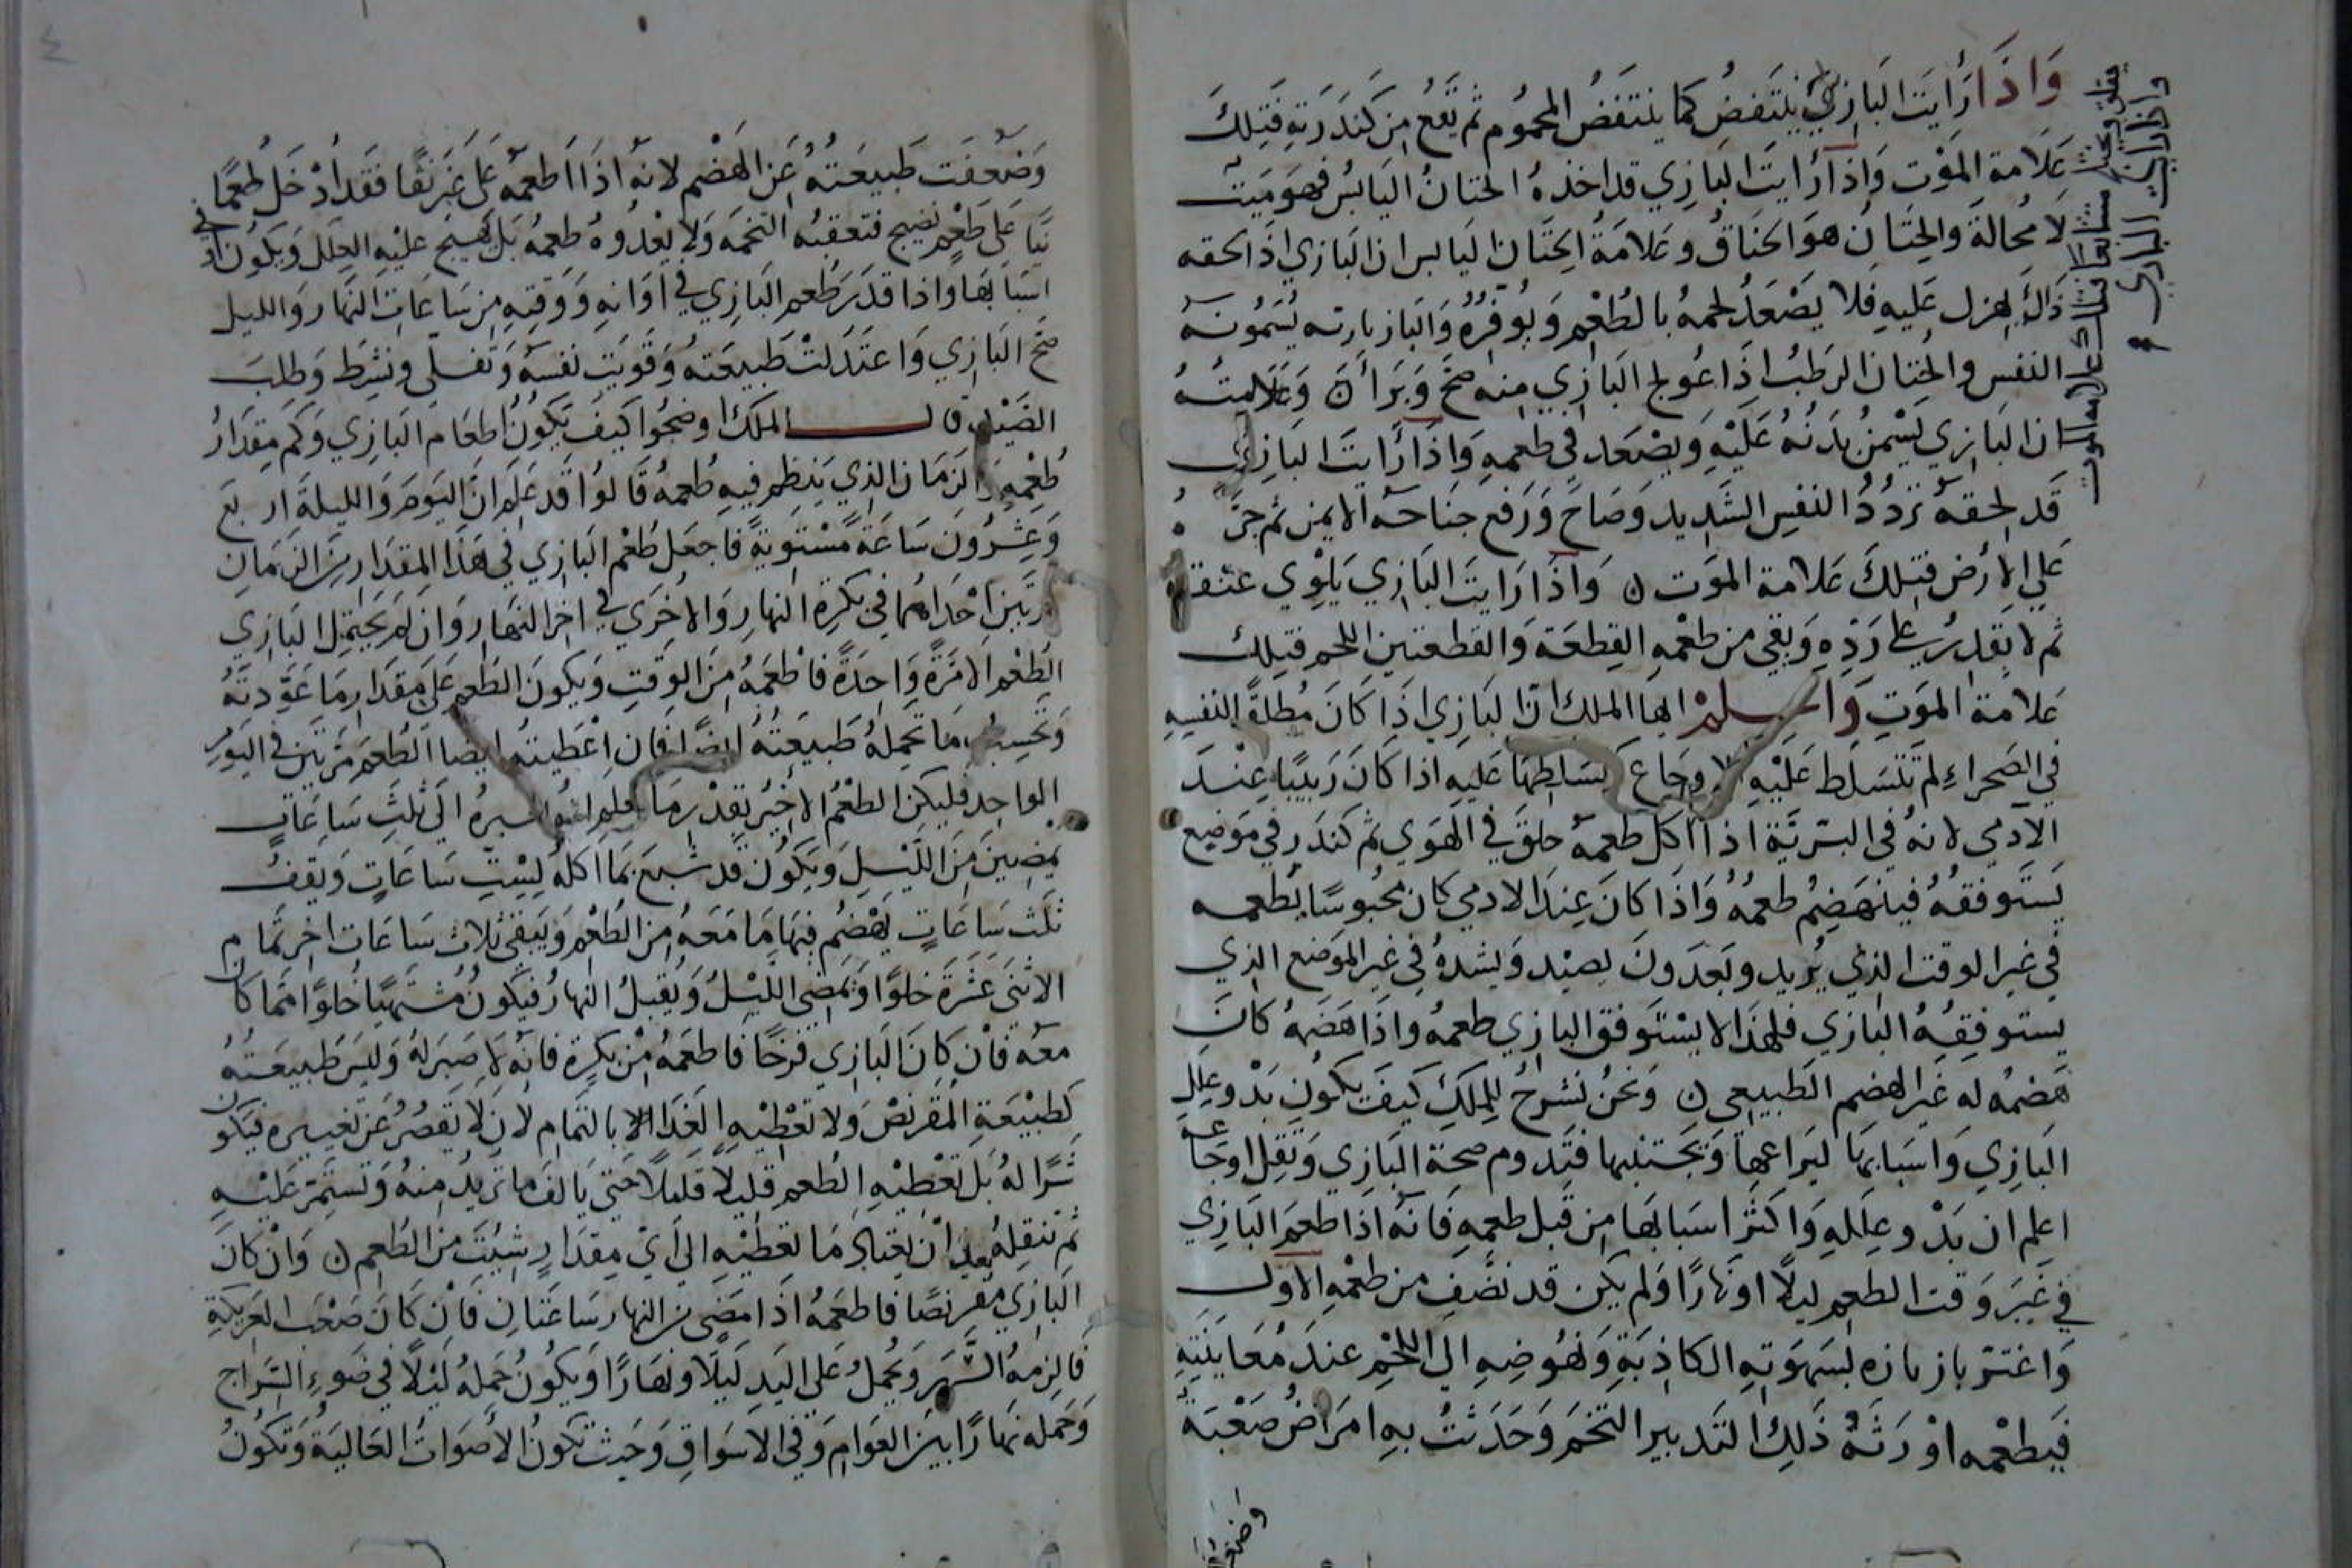 وَاذَا رَأيت البَازي يَنتَفضُ كما ينتَفضُ المحمُوم ثم يَقعُ من كَندَرَتِهِ فَتِلكَ
عَلامة المَوْت وَاذا رَأيتَ البَازِي قد اخذهُ الختانُ اليَابسُ فهوَ مَيت
لا مُحالةَ والختَانُ هوَ الخناقُ وعَلامَةُ الختَان اليَابس ان البَازي اذا لحقه
ذَلكَ هزل عَليهِ فلا يَصْعَدُ لحمهُ بالطُعْمِ وَيُوفّرُهُ وَالبَازيارته يُسَمّونَهُ
النفس والختان الرَطبُ اذا عُولج البَازي منه صَحَّ وَبَرَأ وَعَلامتُهُ
ان البَازِي يَسْمنُ بدَنُهُ عَلَيْهِ وَيصْعَد في طعمهِ وَاذا رَايتَ البَازِي
قَد لحقهُ تَردُدُ النفسِ الشَديد وَصَاحَ وَرَفع جناحَه الايمن ثم خرّ
عَلي الارْض فتِلكَ عَلامة المَوَت وَاذَا رَايتَ البَازِي يَلوِي عنقه
ثم لا يَقدرُ علي رَدّهِ وَبقي من طعْمهِ القِطعَة وَالقطعتين اللحم فتِلك
عَلامة المَوَتِ وَاعلم ايها الملك ان البَازِي اذَا كَانَ مُطلقًا لنفسِهِ
في الصَحراءِ لم تَتَسَلط عَلَيْهِ الاوجَاع كتسَلطِهَا عَليهِ اذا كَانَ رَبيبًا عِنْدَ
الآدمي لانهُ في البرّيَّة اذا اكل طعمهُ حلقَ في الهَوَي ثم كندَر في مَوضِع
يَستَوفقهُ فينهَضِمُ طعمُهُ وَاذَا كانَ عِندَ الادمي كان محبُوسًا يُطعمه
في غير الوقت الذي يُريد وبَعدَ ونَ بصيْد وَيشدهُ في غير الموَضع الذي
يستوفِقِهُ البَازي فلهَذا لا يسْتَوفق البازي طعمهُ واذا هَضَمهُ كَانَ
هَضمُه له غَير الهضم الطَبيعي وَنحنُ نشرَحُ لِلملِكِ كَيفَ يكُونِ بَدْو عِللِ
البَازِي وَاسَبَابهَا ليَراعيهَا وَيجتَنبهَا فتَدوم صحة البَازِي وَتقِل اوجَاعه
اعلم ان بَدْو عِلَلهِ وَاكثَر اسبَابهَا مِن قَبل طعمهِ فَانهُ اذا طعمَ البَازِي
في غَيرَ وَقت الطعمِ ليلًا او نَهارًا وَلم يَكن قد نضَّفَ من طعْمهِ الاول
وَاغترّ بازيَاره بشهوَتِهِ الكاذِبَةِ وَنهُوضِهِ الي اللحْمِ عندَ مُعَاينتِهِ
فيَطعْمه اوْرَثَهُ ذَلِكَ التَدبير التُخَمَ وَحَدَثَتْ بهِ امرَاضُ صَعْبَة
وَضَعُفَت طَبيعَتهُ عَن الهَضْم لانهُ اذَا اطعمَهُ عَلي غَير نقًا فقَد ادْخَلَ طُعمًا
نيًا عَلي طَعْمٍ نضيج فتعقبهُ التخمَه وَلا يعْدُوهُ طعمهُ بل يهَيج عليْهِ العِلَل وَيكُون في
اسَبَابهَا وَاذا قدرَ طُعم البَازِي في اوَانهِ وَوَقتِهِ مِن سَاعَاتِ النهَار وَالليل
صَحّ البَازِي وَاعتَدَلتْ طَبيعَتهُ وَقويَت نفسَهُ وَتَفلّى ونشِط وَطلِبَ
الصَيْد قال المَلك اوضحُوا كيفَ يكونُ اطِعَام البَازي وَكَم مِقدَارُ
طُعْمِهِ وَالزَمَان الذي يَنتظِم فيهِ طُعمهُ قَالوُا قد عَلم انَّ اليَومَ وَالليلَةَ اربَع
وَعِشرُونَ سَاعَةً مُسْتَويَةً فاجعَل طُعْم البَازِي في هَذا المقدَارِ مِنَ الزمَانِ
مَرتَين احْدَاهُمَا في بكرةِ النهار وَالاخرَي في اخر النَهَار وَان لم يَحتَمل البَازِي
الطُعْم الا مَرةً وَاحِدَةً فاطْعَمِهُ مِنَ الوَقتِ وَيكونَ الطُعم عَلي مِقدَار مَا عَوَّدتَهُ
وَبحسبِ مَا تحملهُ طبيعَتهُ ايضًا فان اعْطيتَهُ ايضًا الطُعم مَرتين في اليَوَم
الواحِد فليكن الطعْمُ الاخيرُ بقدْر مَا الي ثلثِ سَاعَاتٍ
يمضِينَ مِنَ اللَّيْلِ وَيكوُن قَد شبعَ بمَا اكلهُ لِسِتِ سَاعَاتٍ وَيقفُ
ثلث سَاعَاتٍ يهْضُم فيهَا مَا مَعَهُ مِن الطعْم وَيَبقى ثلاث سَاعَات اخر تمام
الاثنَى عَشرَةَ خلوًا وَيمضي اللَّيْلُ وَيُقبلُ النهارُ فيكونُ مُشتهيًا خلوًا ممَا كان
مَعَهُ فَان كانَ البَازِي فَرخًا فَاطعَمهُ مِن بكرةٍ فانهُ لا صَبرَ لهُ وَليسَ طبيعَتهُ
كطبيْعَةِ المُقرنص وَلا تعْطيْهِ الغَذا الا بالتمَام لان لا يَقصُرُ عَن تغييره فيكون
شَرًا لهُ بَل تعْطِيْهِ الطعم قليلًا قليلًا حَتي يَالف مَا تريدُ منهُ وَتستَمرّ عَليْهِ
ثم تنقلهُ بعد ان يعتَادَ مَا تعطيْهِ الي ايِّ مِقدَارٍ شِيتَ من الطُعم وَان كانَ
البَازي مقرنصًا فاطعَمهُ اذَا مَضي من النهار سَاعَتَانِ فَان كَانَ صَعْب العَريكةِ
فالزمهُ السَّهر وَيحملُ عَلي اليَدِ لَيلًا وَنهَارًا وَيكونُ حَملهُ لَيْلًا في ضَوءِ السِّرَاج
وَحَمله نهارًا بَين العَوامِ وَفي الاسَوَاقِ وَحَيث تكونُ الأصوَاتُ العَاليَةُ وَتكونُ
وضعفت
واذا رايت البازي